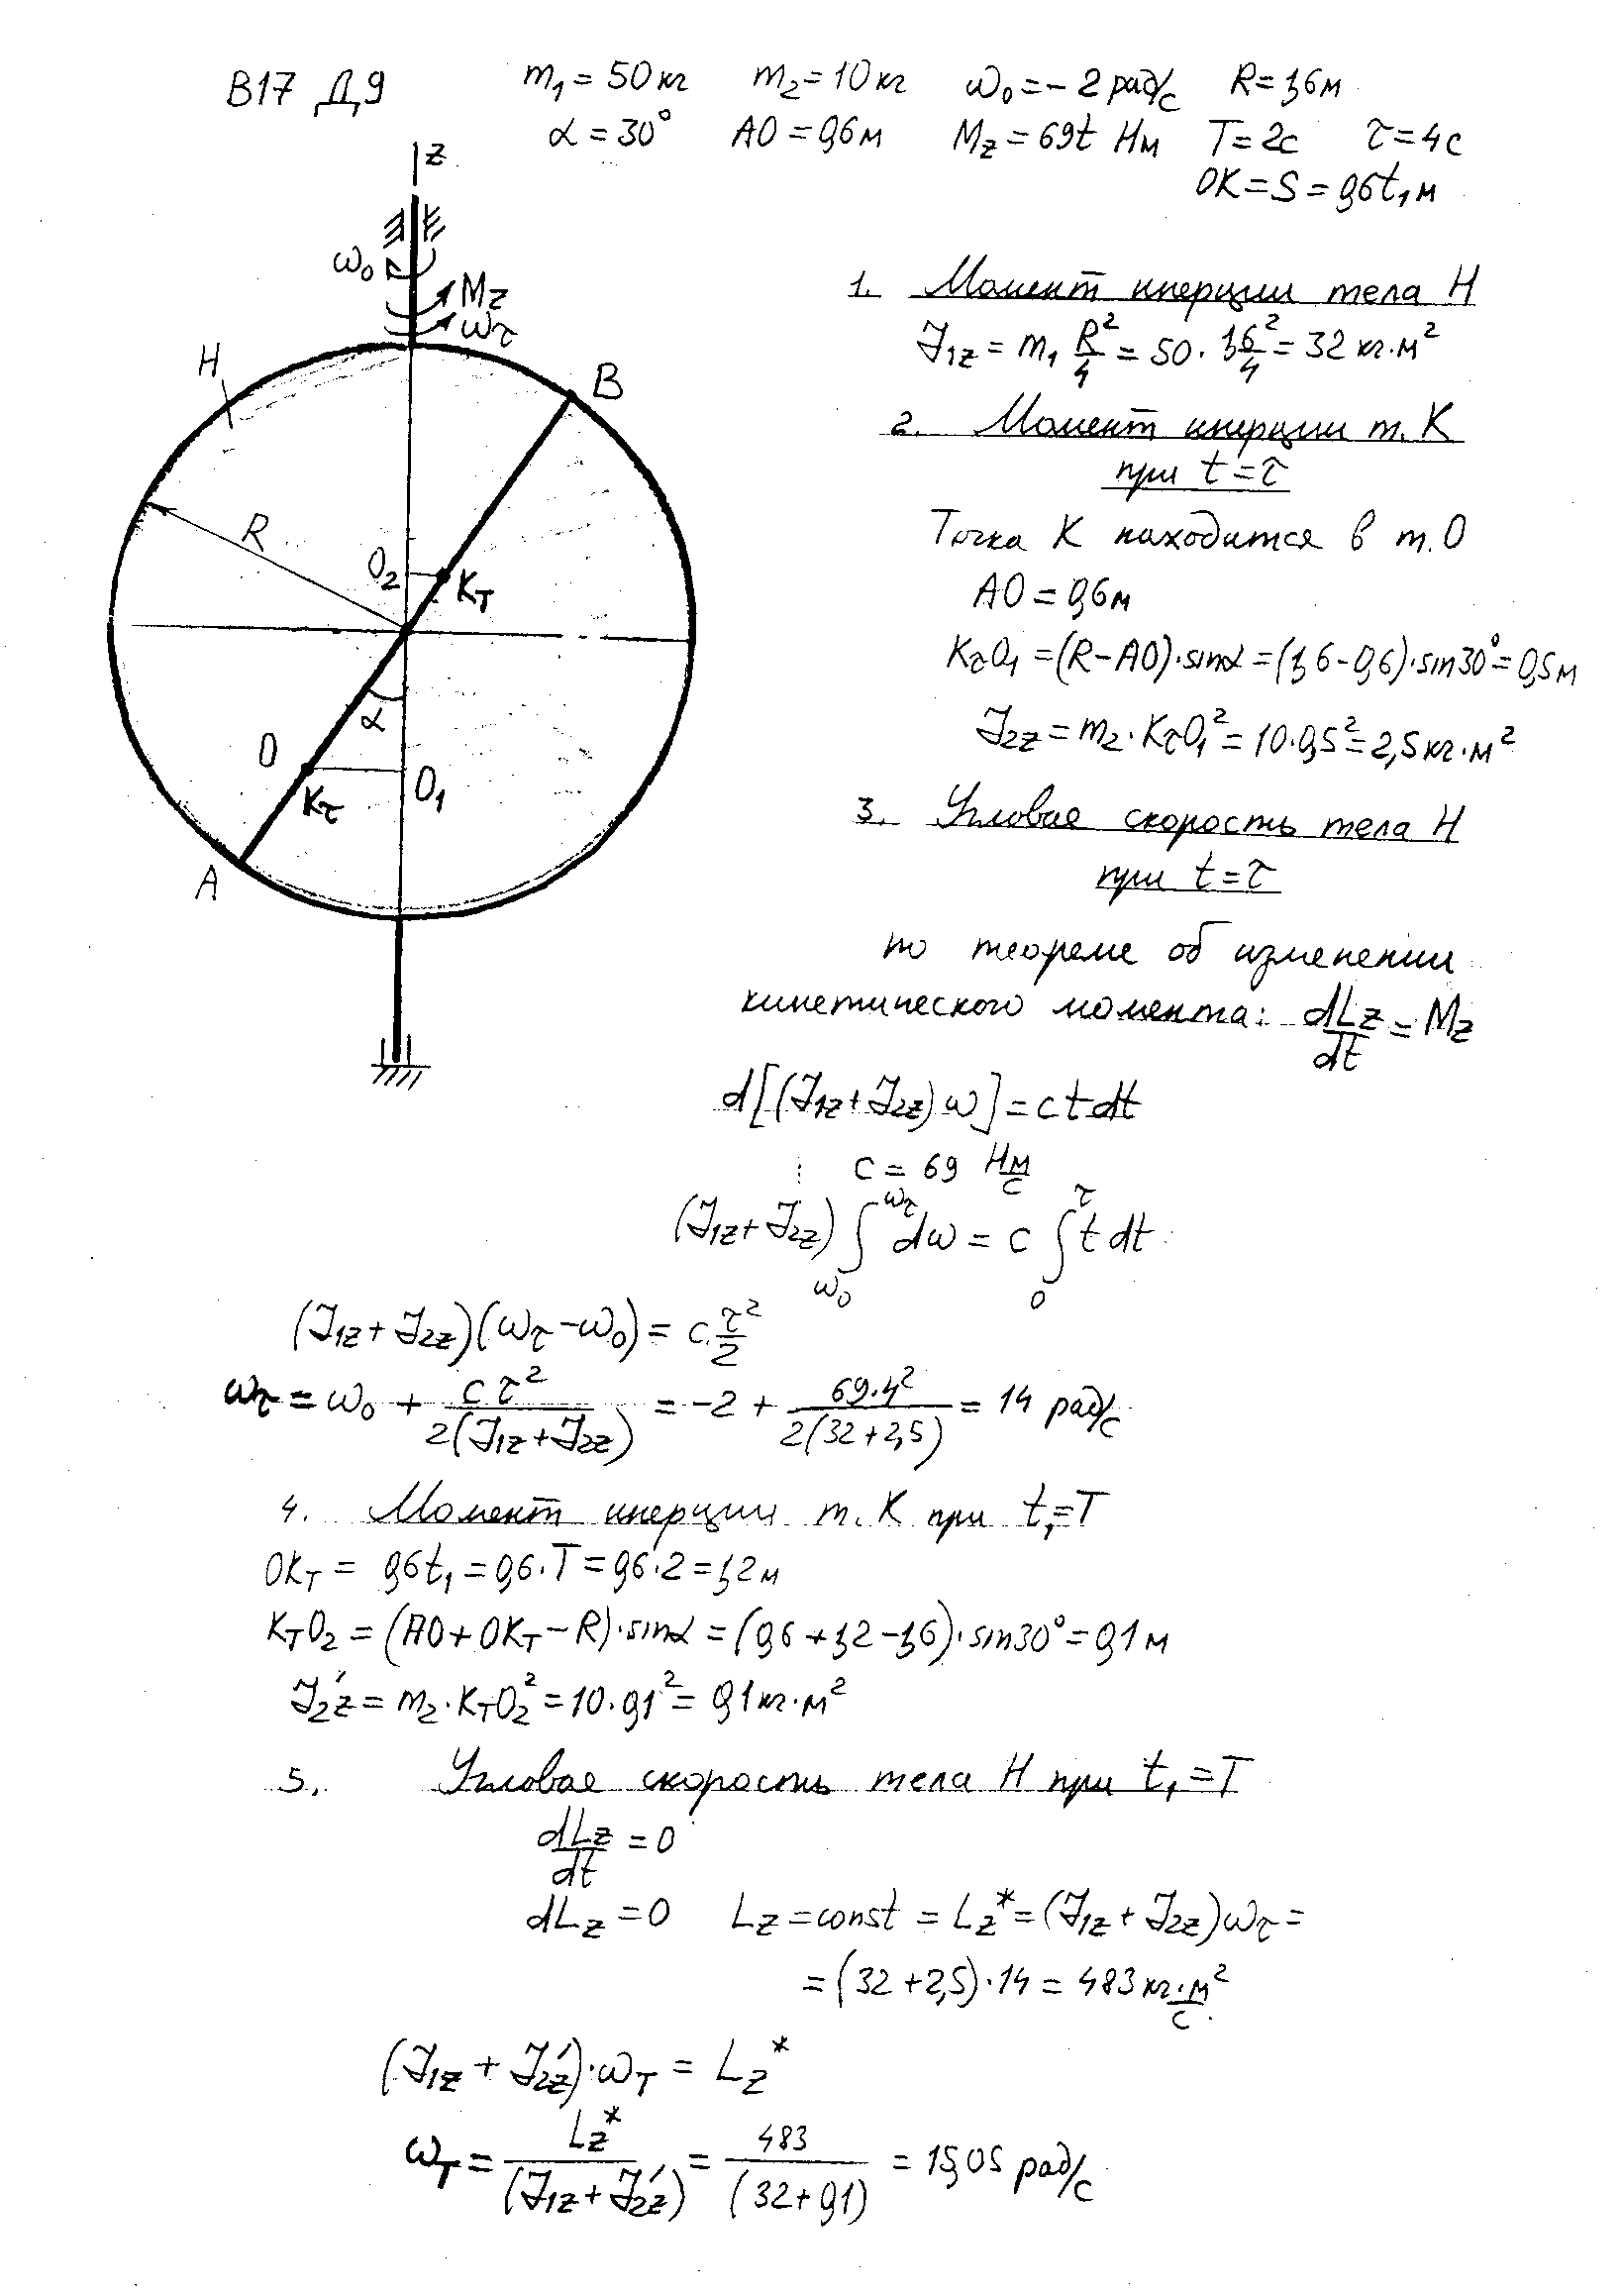 В17 Д9
m₁ = 50кг m₂ = 10кг ω₀ = − 2 рад/с R = 1,6м
α = 30° AO = 0,6м M_z = 69t Нм T = 2c τ = 4c
OK = S = 0,6t₁ м
z
ω₀
M_z
ω_τ
H
B
R
O₂
K_T
α
O
O₁
K_τ
A
1. Момент инерции тела H
J₁z = m₁ R²/4 = 50 · 1,6²/4 = 32 кг·м²
2. Момент инерции т. K
при t = τ
Точка K находится в т. O
AO = 0,6м
K_τO₁ = (R−AO)·sinα = (1,6−0,6)·sin30° = 0,5м
J₂z = m₂·K_τO₁² = 10·0,5² = 2,5 кг·м²
3. Угловая скорость тела H
при t = τ
по теореме об изменении
кинетического момента: dLz/dt = Mz
d[(J₁z + J₂z)ω] = c t dt
c = 69 Нм/с
(J₁z + J₂z) ∫_ω₀^ω_τ dω = c ∫_0^τ t dt
(J₁z + J₂z)(ω_τ − ω₀) = c τ²/2
ω_τ = ω₀ + cτ²/2(J₁z + J₂z) = −2 + 69·4²/2(32+2,5) = 14 рад/с
4. Момент инерции т. K при t₁=T
OK_T = 0,6t₁ = 0,6·T = 0,6·2 = 1,2м
K_TO₂ = (AO + OK_T − R)·sinα = (0,6 + 1,2 − 1,6)·sin30° = 0,1м
J₂'z = m₂·K_TO₂² = 10·0,1² = 0,1 кг·м²
5. Угловая скорость тела H при t₁=T
dLz/dt = 0
dLz = 0 Lz = const = Lz* = (J₁z + J₂z)ω_τ =
= (32 + 2,5)·14 = 483 кг·м²/с
(J₁z + J₂z')·ω_T = Lz*
ω_T = Lz*/(J₁z + J₂z') = 483/(32+0,1) = 15,05 рад/с